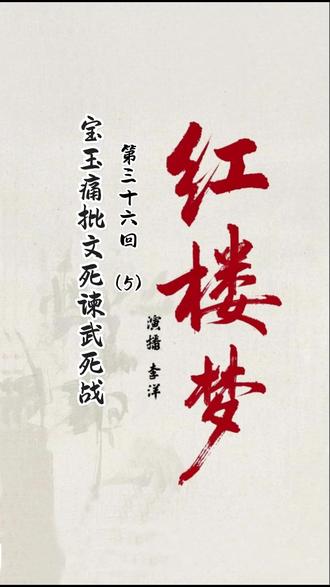 红楼梦
演播 李洋
第三十六回（5）
宝玉痛批文死谏武死战